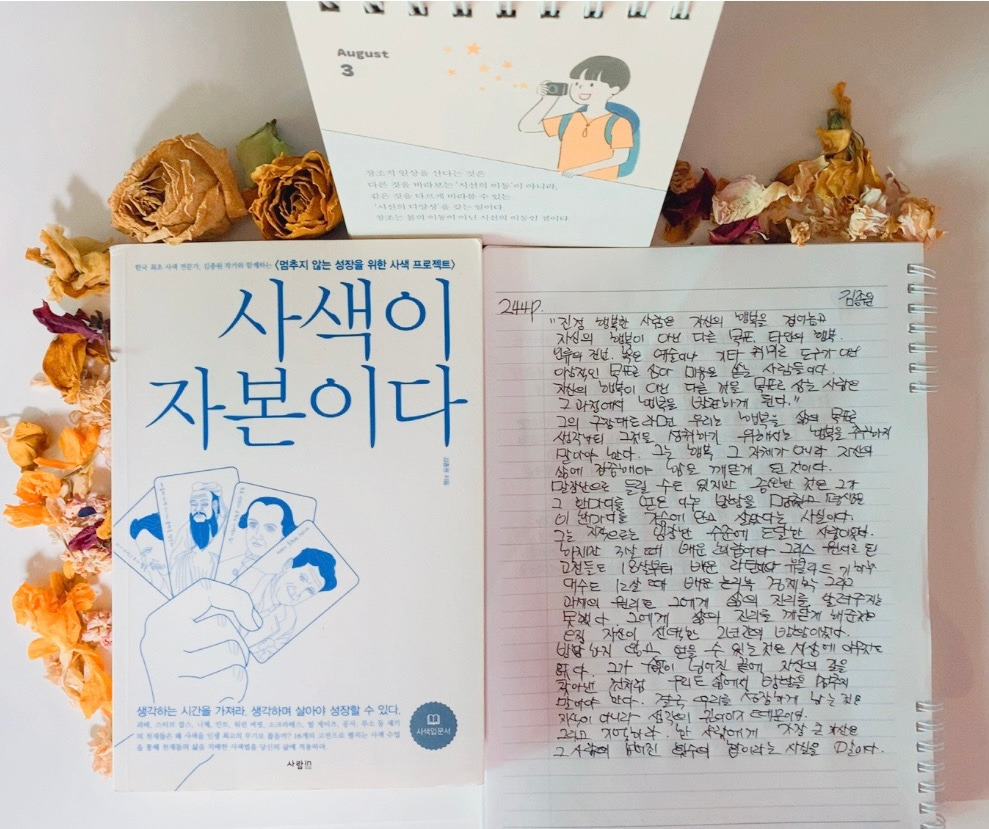 August
3
창조적 일상을 산다는 것은
다른 것을 바라보는 '시선의 이동'이 아니라,
같은 것을 다르게 바라볼 수 있는
'시선의 다양성'을 갖는 일이다.
창조는 몸의 이동이 아닌 시선의 이동인 셈이다.
한국 최초 사색 전문가, 김종원 작가와 함께하는 〈멈추지 않는 성장을 위한 사색 프로젝트〉
사색이
자본이다
김종원 지음
생각하는 시간을 가져라, 생각하며 살아야 성장할 수 있다.
괴테, 스티브 잡스, 니체, 칸트, 워런 버핏, 소크라테스, 빌 게이츠, 공자, 루소 등 세기
의 천재들은 왜 사색을 인생 최고의 무기로 꼽을까?
을 통해 천재들의 삶을 지배한 사색법을 당신의 삶에 적용하라.
사색입문서
사람in
244P.
김종원
"진정 행복한 사람은 자신의 행복을 접어놓고
자신의 행복이 아닌 다른 목표, 타인의 행복,
인류의 진보, 혹은 예술이나 기타 취미로 도구가 아닌
이상적인 목표로 삼아 마음을 쏟는 사람들이다.
자신의 행복이 아닌 다른 것을 목표로 삼는 사람은
그 과정에서 행복을 발견하게 된다."
그의 주장대로라면 우리는 행복을 삶의 목표로
생각하되 그것을 성취하기 위해서는 행복을 추구하지
말아야 한다. 그는 행복 그 자체가 아니라 자신의
삶에 집중해야 함을 깨닫게 된 것이다.
말장난으로 들릴 수도 있지만 중요한 것은 그가
그 한마디를 얻은 이후 방황을 멈추고 평생을
이 한마디를 가슴에 안고 살았다는 사실이다.
그는 지적으로는 굉장한 수준에 도달한 사람이었다.
하지만 3살 때 배운 그리스 원서로 된
고전들도 8살부터 배운 라틴어와 유클리드 기하학
대수도 12살 때 배운 논리학 경제학 그리고
과학의 원리도 그에게 삶의 진리를 알려주지는
못했다. 그에게 삶의 진리를 깨닫게 해준 것은
오직 자신이 선택한 2년간의 방황이었다.
방황하지 않고 얻을 수 있는 것은 세상에 아무것도
없다. 그가 끝에 자신의 길을
찾아낸 것처럼 우리도 삶에서 방황을 멈추지
말아야 한다. 결국, 우리를 성장하게 하는 것은
지식이 아니라 생각의 때문이다.
그리고 기억하라. 한 사람에게 가장 큰 자산은
그 사람의 사실을